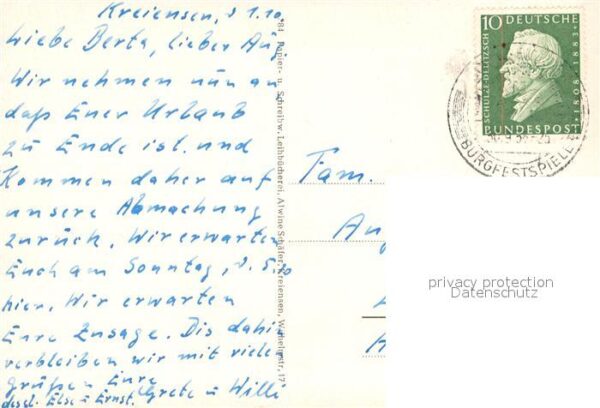 Kreiensen, d 1.10.
Liebe Berta, lieber Aug
Wir nehmen nun an
daß Euer Urlaub
zu Ende ist. und
Kommen daher auf
unsere Abmachung
zurück. Wir erwarten
Euch am Sonntag, d. 5.10
hier. Wir erwarten
Eure Zusage. Bis dahin
verbleiben wir mit viele
Grüßen Eure
Grete u Willi
desgl. Else u. Ernst.
*84 Papier- u. Schreibw. Leihbücherei, Alwine Schäfer, Kreiensen, Wilhelmstr. 17
10 DEUTSCHE
BUNDESPOST
SCHULZE-DELITZSCH
1808-1883
BURGFESTSPIELE
Fam.
privacy protection
Datenschutz